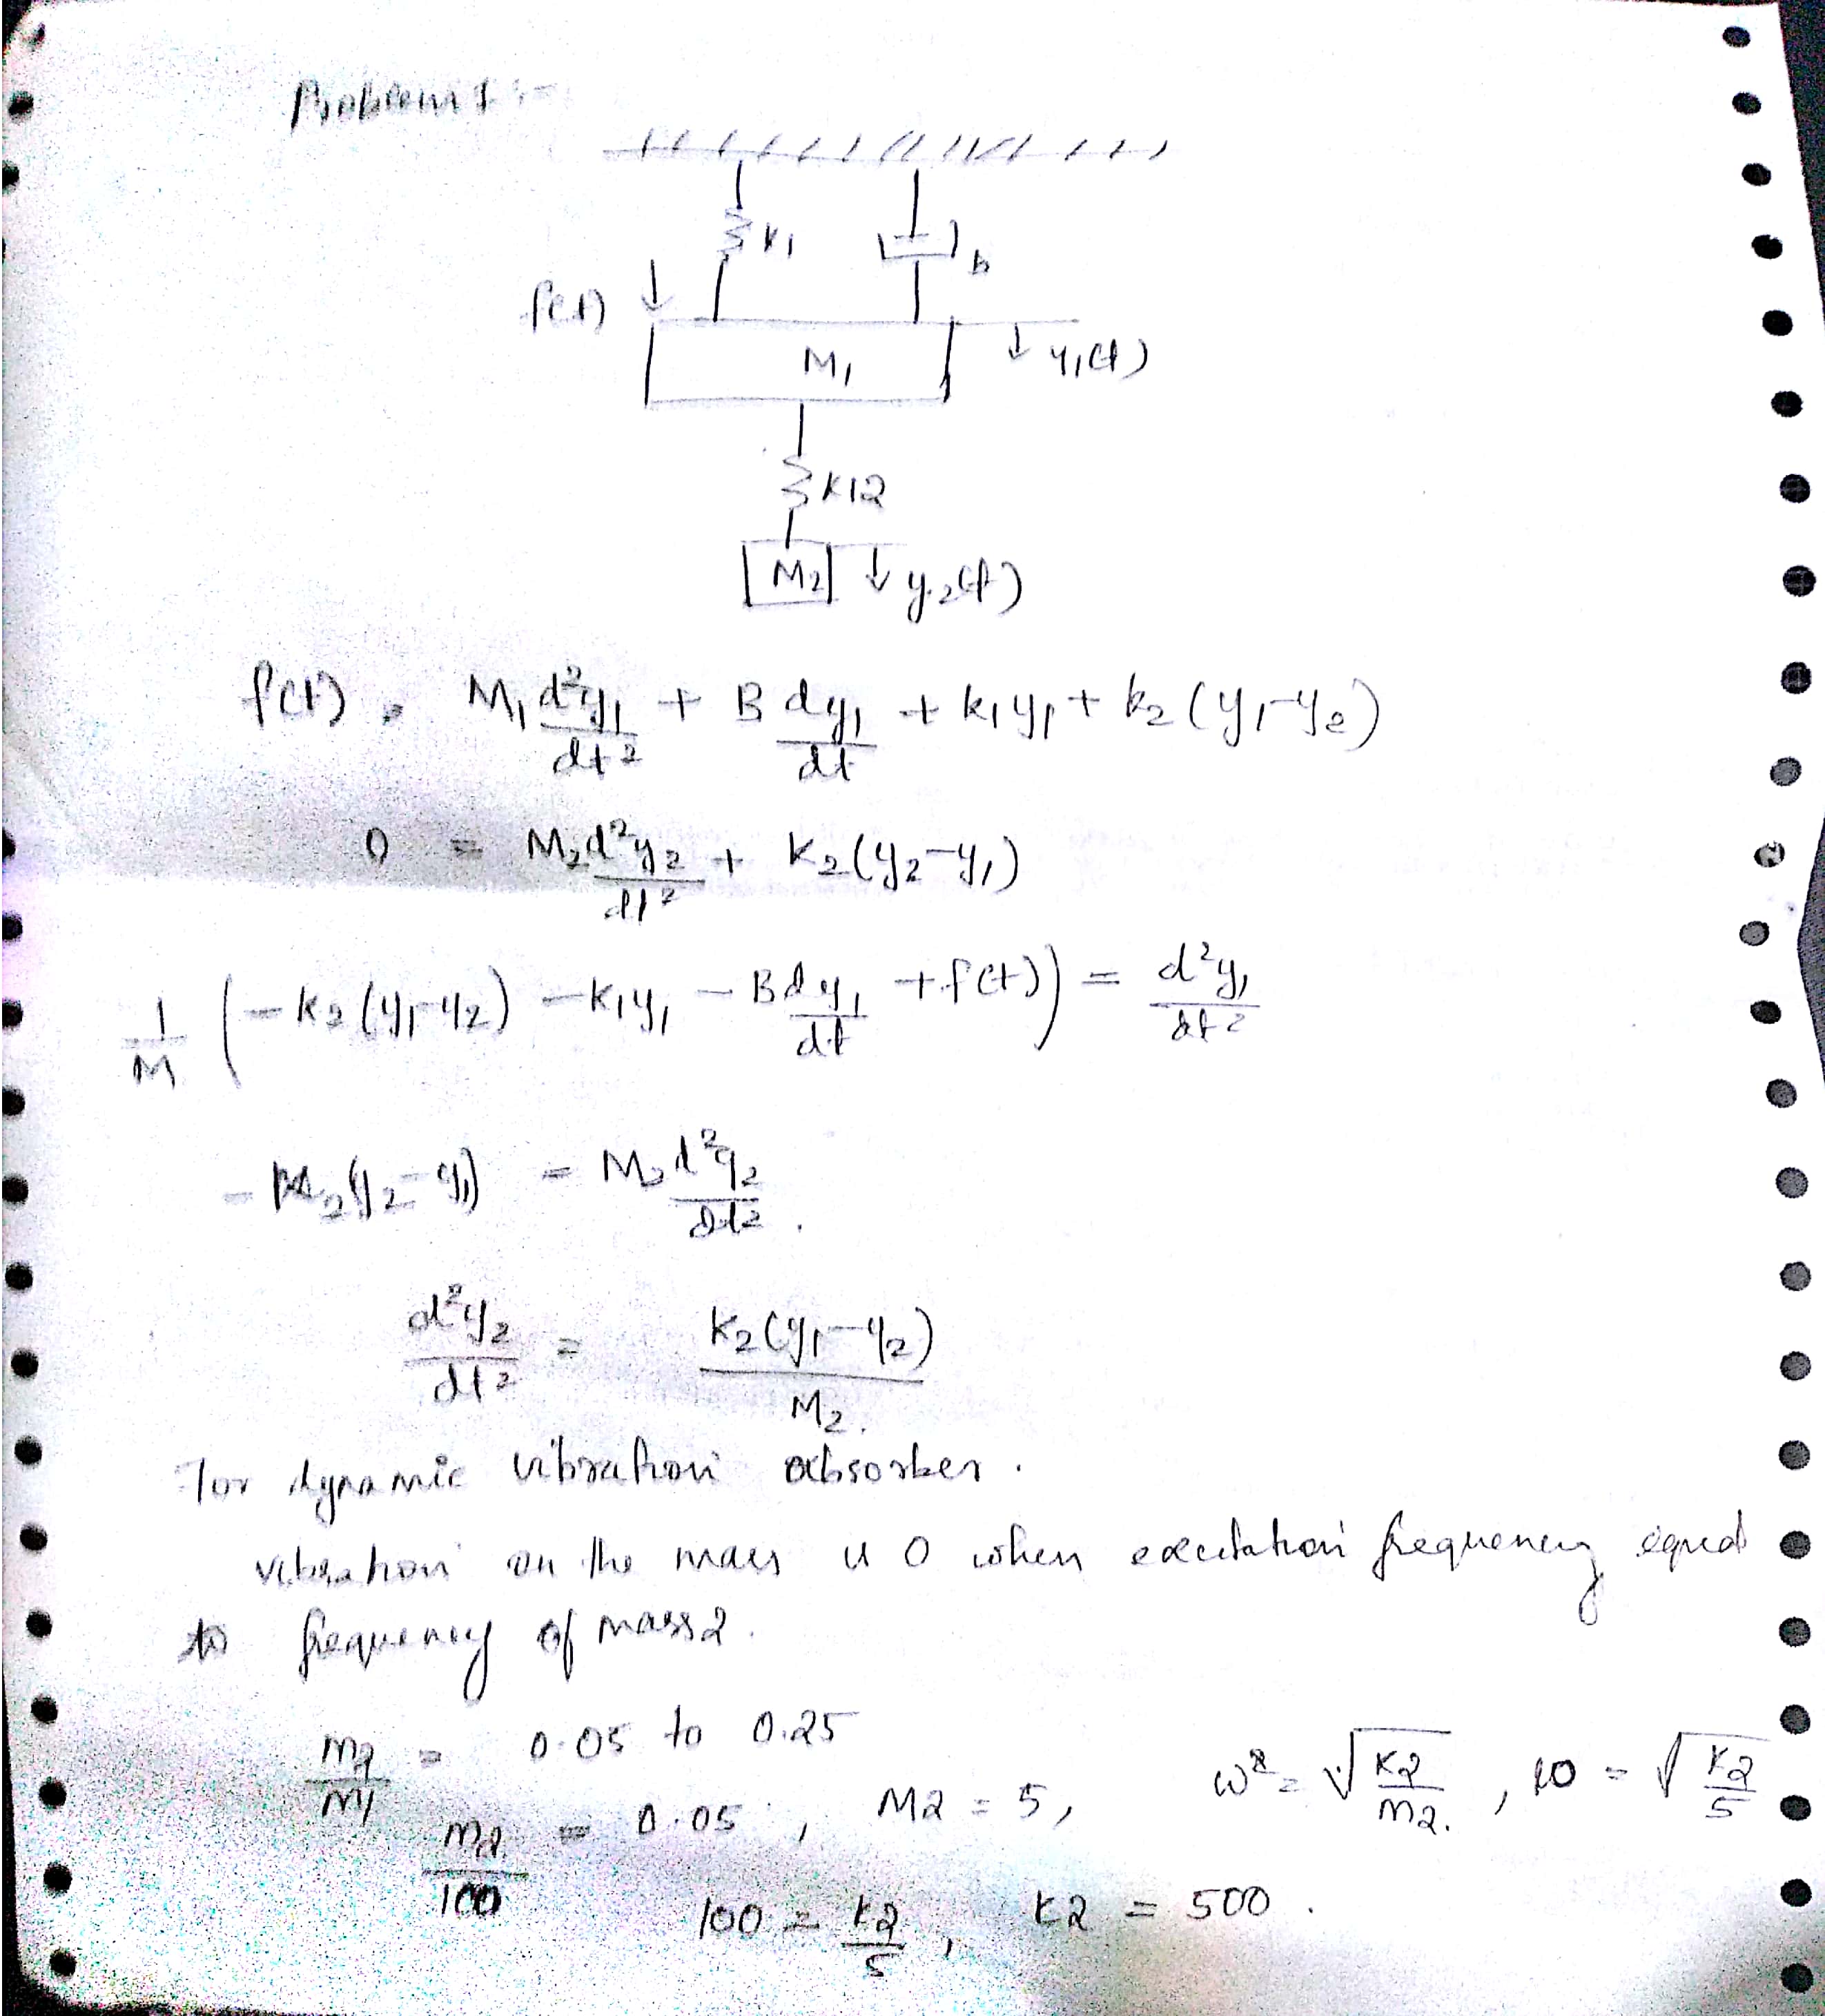 Problem 1 :-
K1
b
f(t)
M1
y1(t)
K12
M2
y2(t)
f(t) = M1 d²y1/dt² + B dy1/dt + k1y1 + k2(y1-y2)
0 = M2 d²y2/dt² + K2(y2-y1)
1/M (-K2(y1-y2) - K1y1 - B dy1/dt + f(t)) = d²y1/dt²
(y2-y1) = M2 d²y2/dt².
d²y2/dt² = K2(y1-y2)/M2.
For dynamic vibration absorber.
vibration on the mass is 0 when excitation frequency equal
to frequency of mass2.
m2/m1 = 0.05 to 0.25
m2/100 = 0.05, M2 = 5, = √K2/m2., 10 = √K2/5
100 = K2/5, K2 = 500.